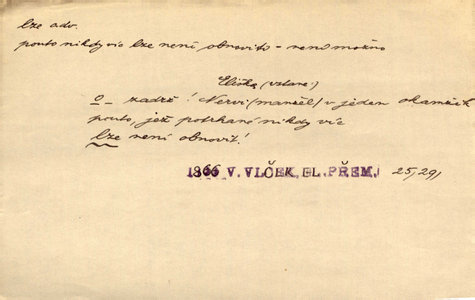 lze adv.
pouto nikdy víc lze není obnovito - není možno
Eliška (vstane:)
O - zadrž! Nervi (manžel) v jeden okamžik
pouto, jež potrhané nikdy víc
lze není obnovit!
1866 V. VLČEK, EL. PŘEM. 25, 29,